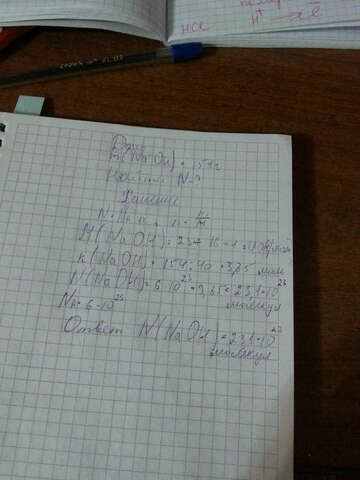 нск
H⁺
Дано
m(NaOH) = 154г
Найти N-?
Решение
N = Na · n n = m/M
M(NaOH) = 23 + 16 + 1 = 40 г/моль
n(NaOH) = 154 : 40 = 3,85 моль
N(NaOH) = 6 · 10²³ · 3,85 = 23,1 · 10²³
молекул
Na = 6 · 10²³
Ответ N(NaOH) = 23,1 · 10²³
молекул